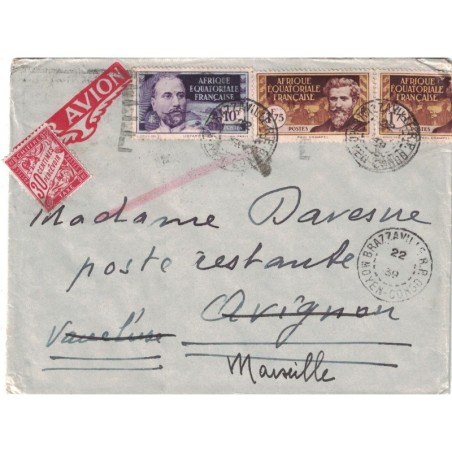 AVION
AFRIQUE
EQUATORIALE
FRANÇAISE
10
POSTES
AFRIQUE
EQUATORIALE
FRANÇAISE
75
POSTES
AFRIQUE
EQUATORIALE
POSTES
30
CENTIMES
A PERCEVOIR
BRAZZAVILLE R.P.
22
39
MOYEN-CONGO
Madame Davesne
poste restante
Avignon
Vaucluse
Marseille